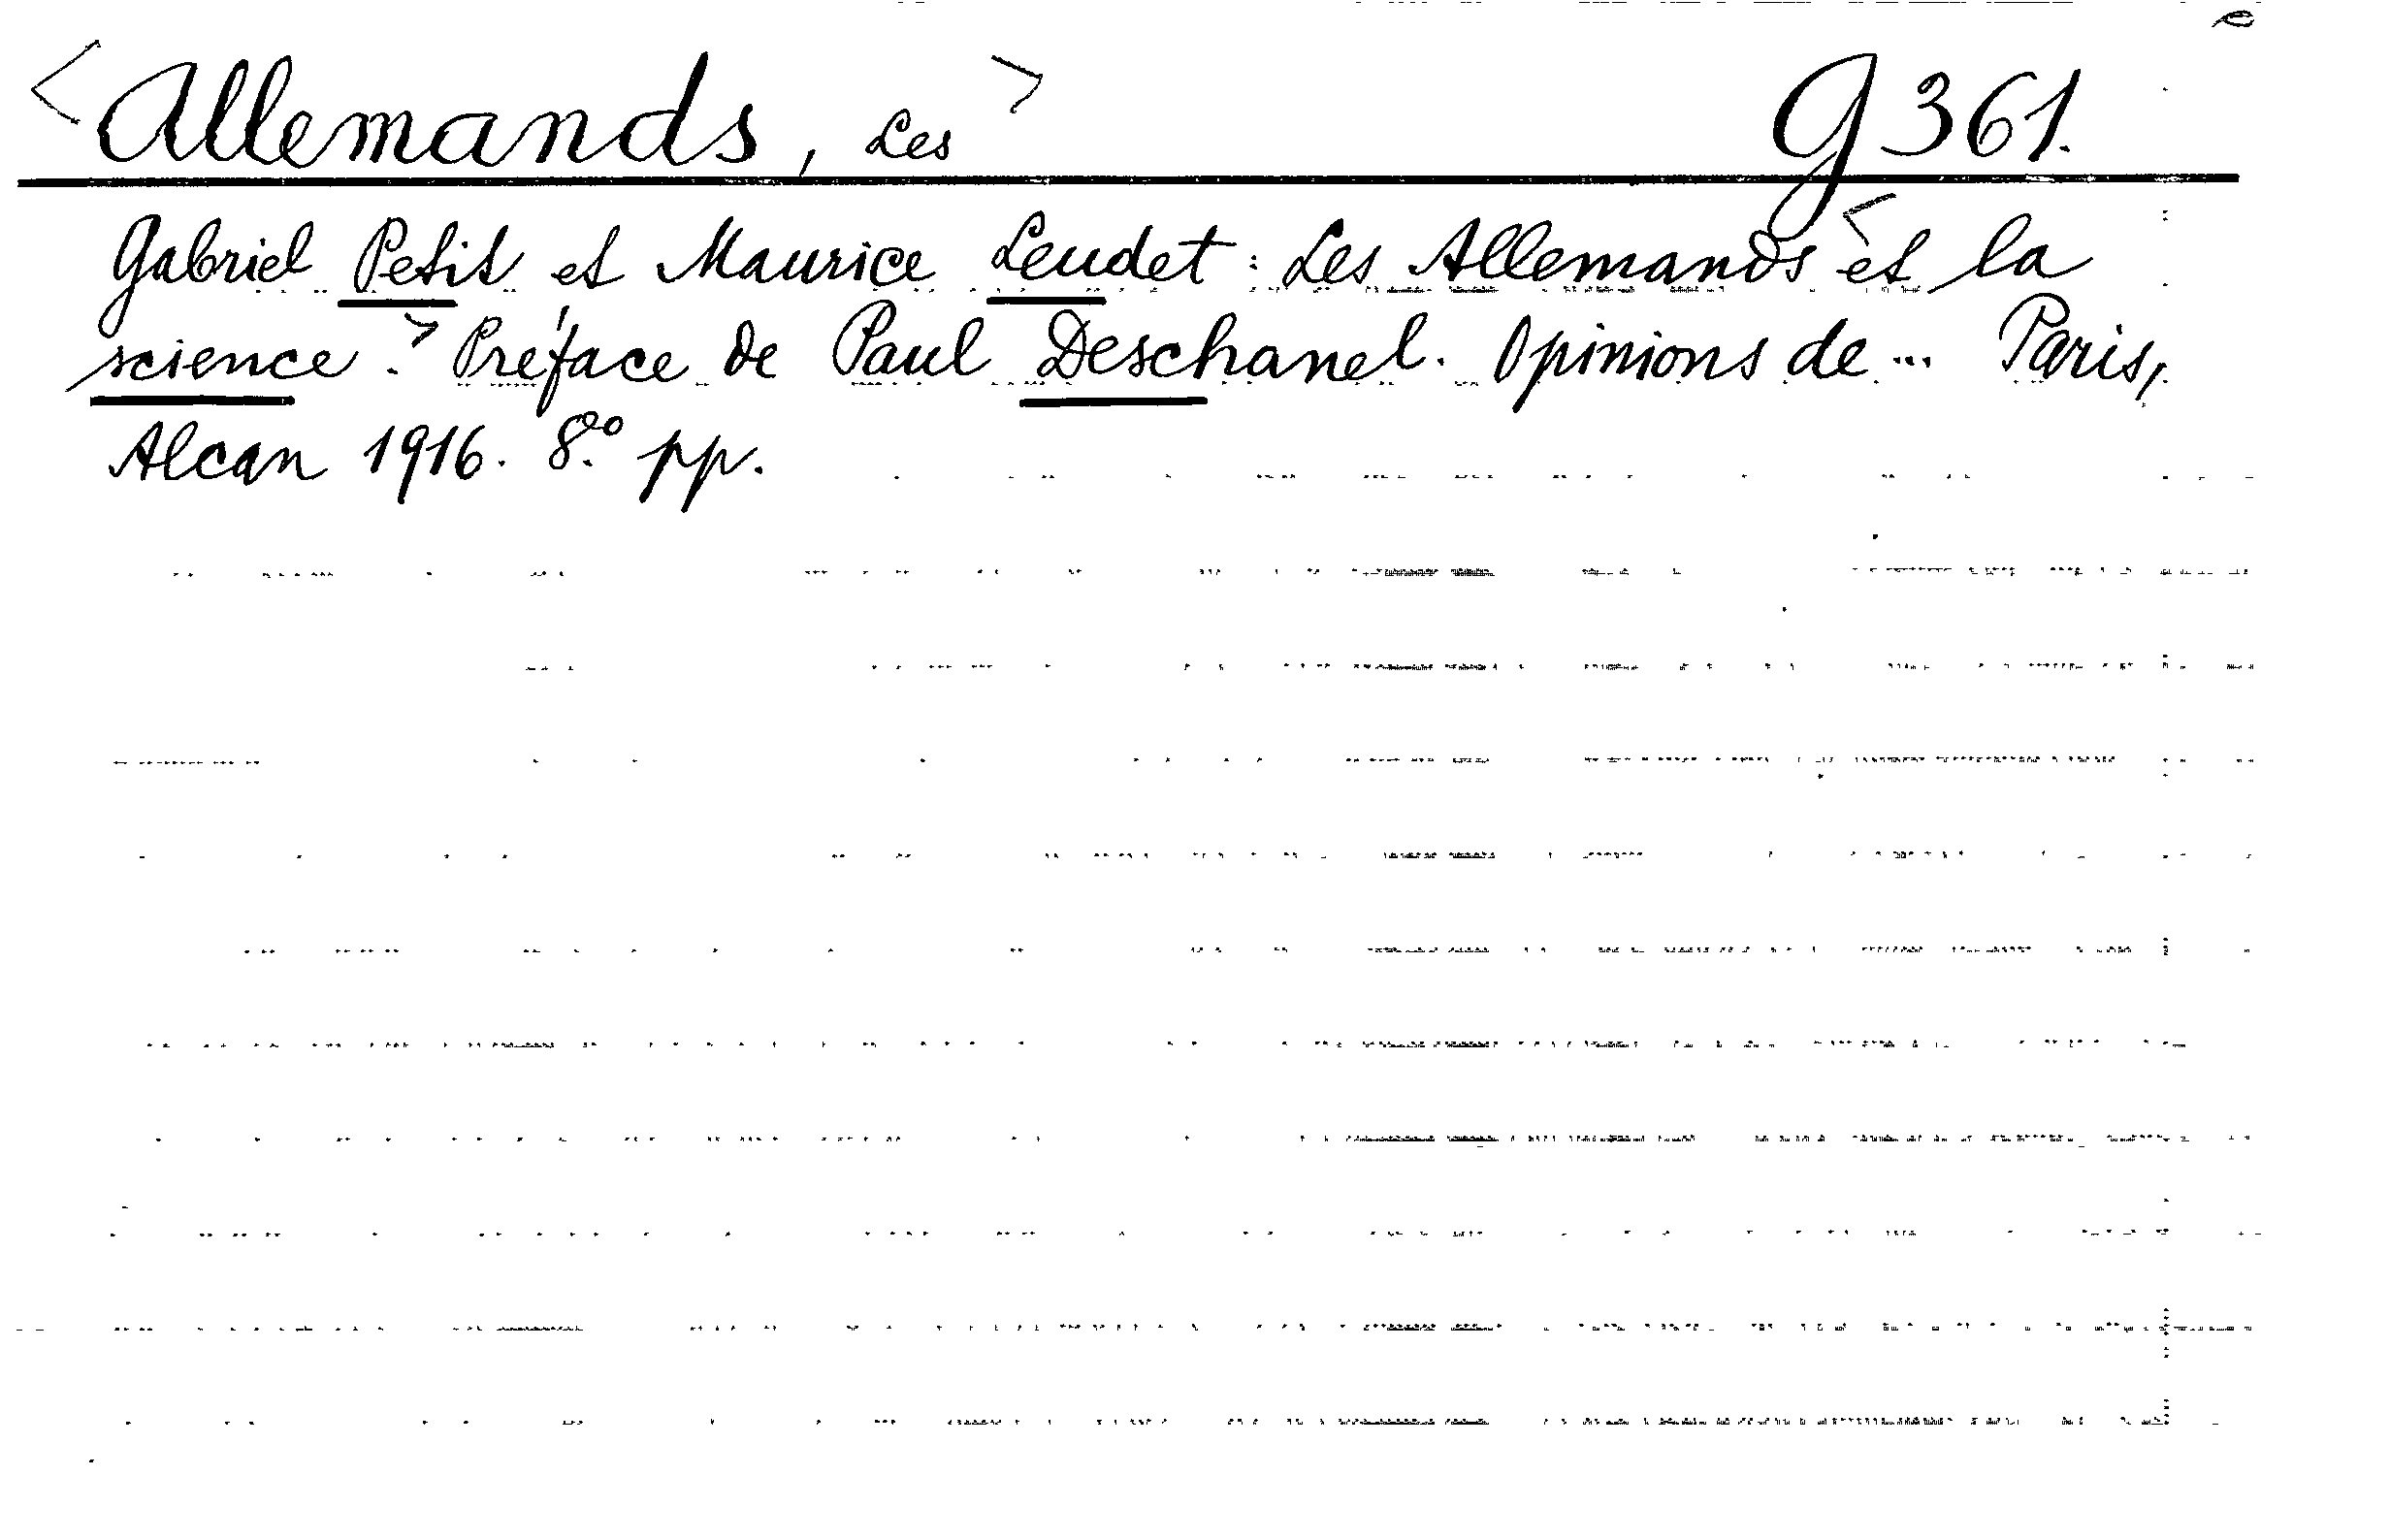 <Allemands, Les> G 361.
Gabriel Petit et Maurice Leudet: Les Allemands <et la
science.> Préface de Paul Deschanel. Opinions de ... Paris,
Alcan 1916. 8.º pp.